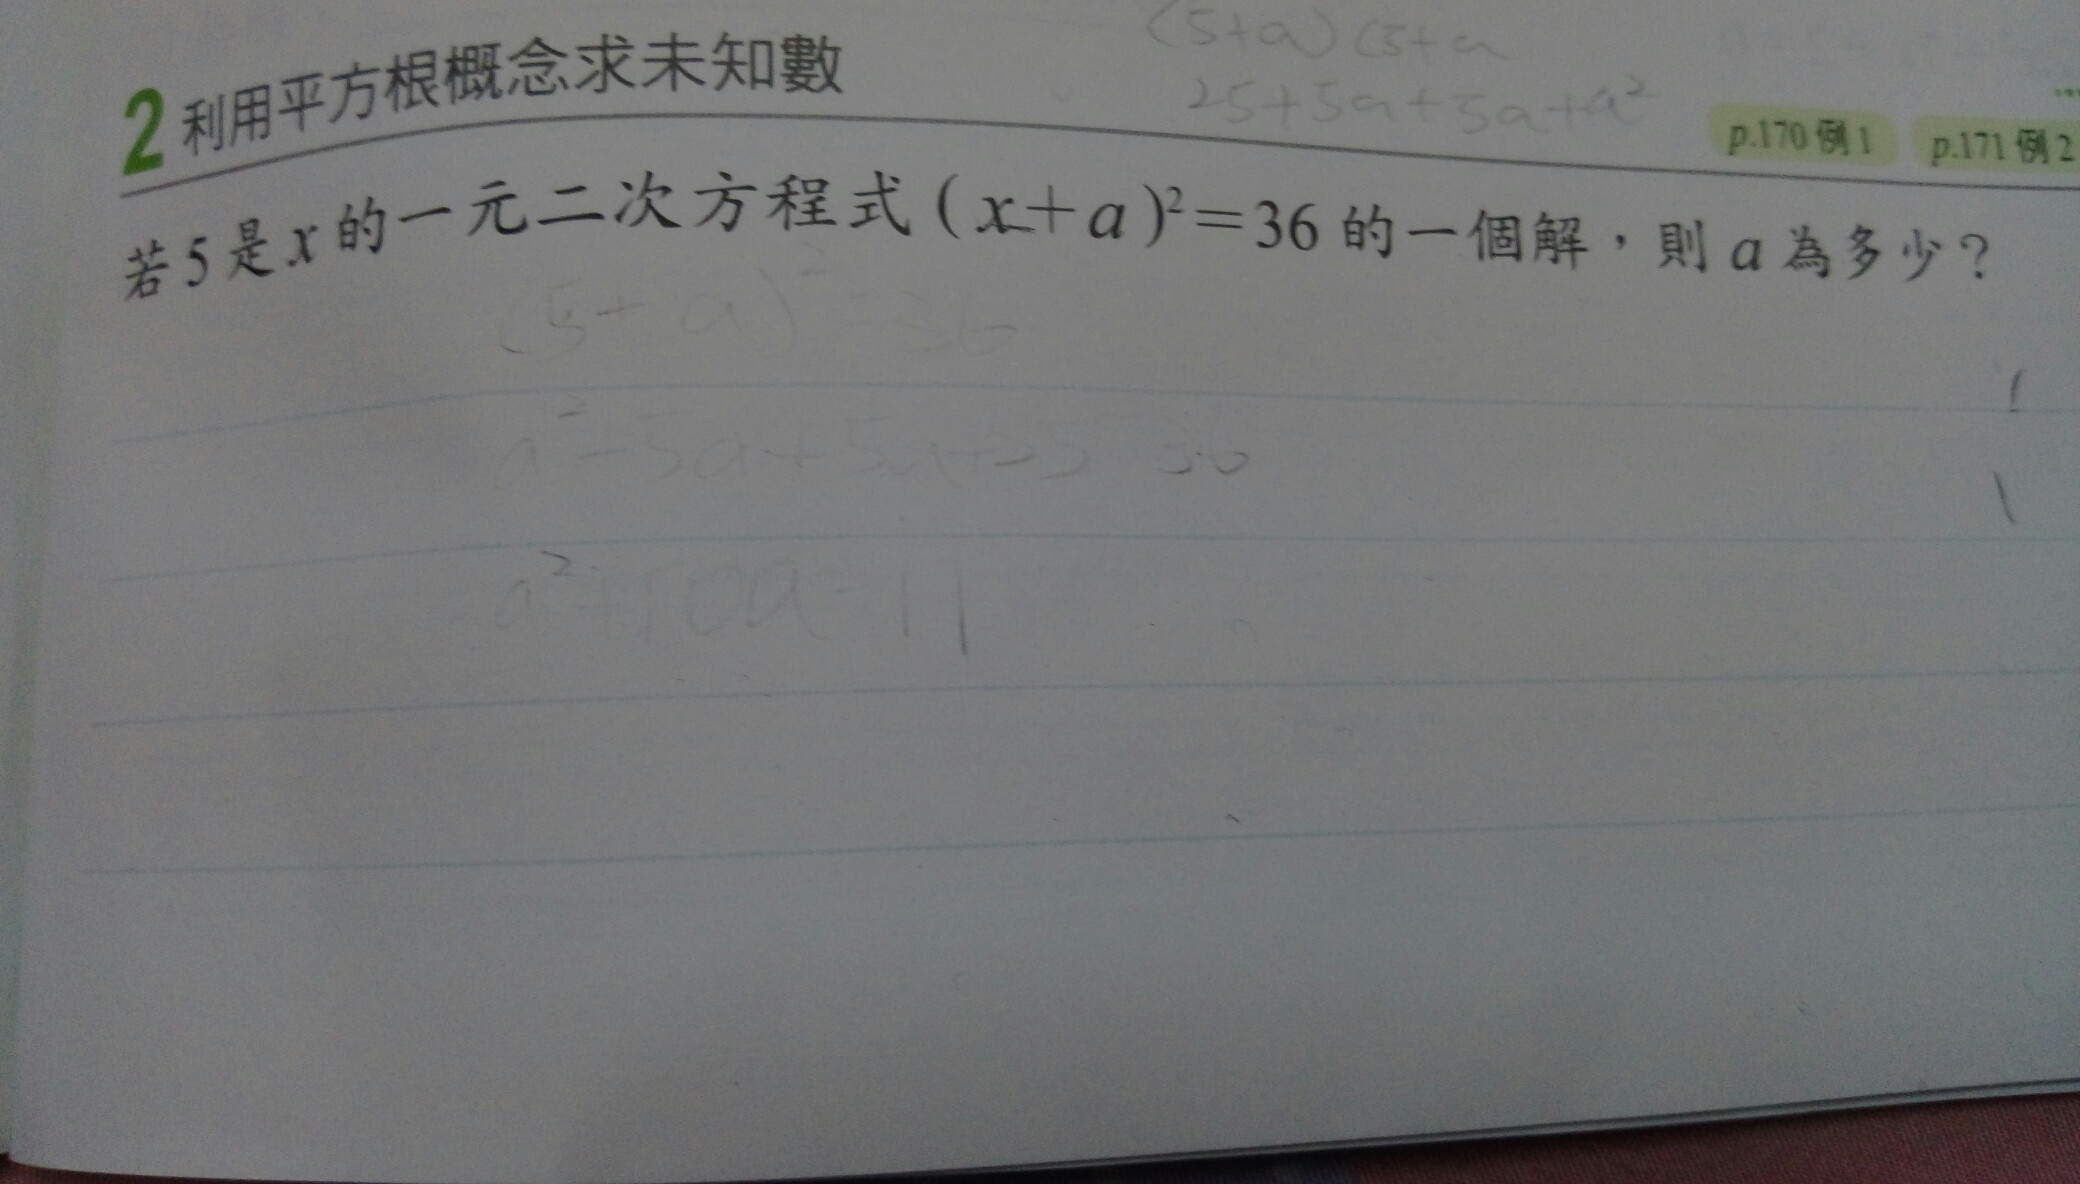 (5+a)(5+a
25+5a+5a+a²
2 利用平方根概念求未知數
p.170 例1 p.171 例2
若5是x的一元二次方程式(x+a)²=36的一個解，則a為多少？
(5+a)² 36
a²+5a+5a+25 36
a²+10a-11